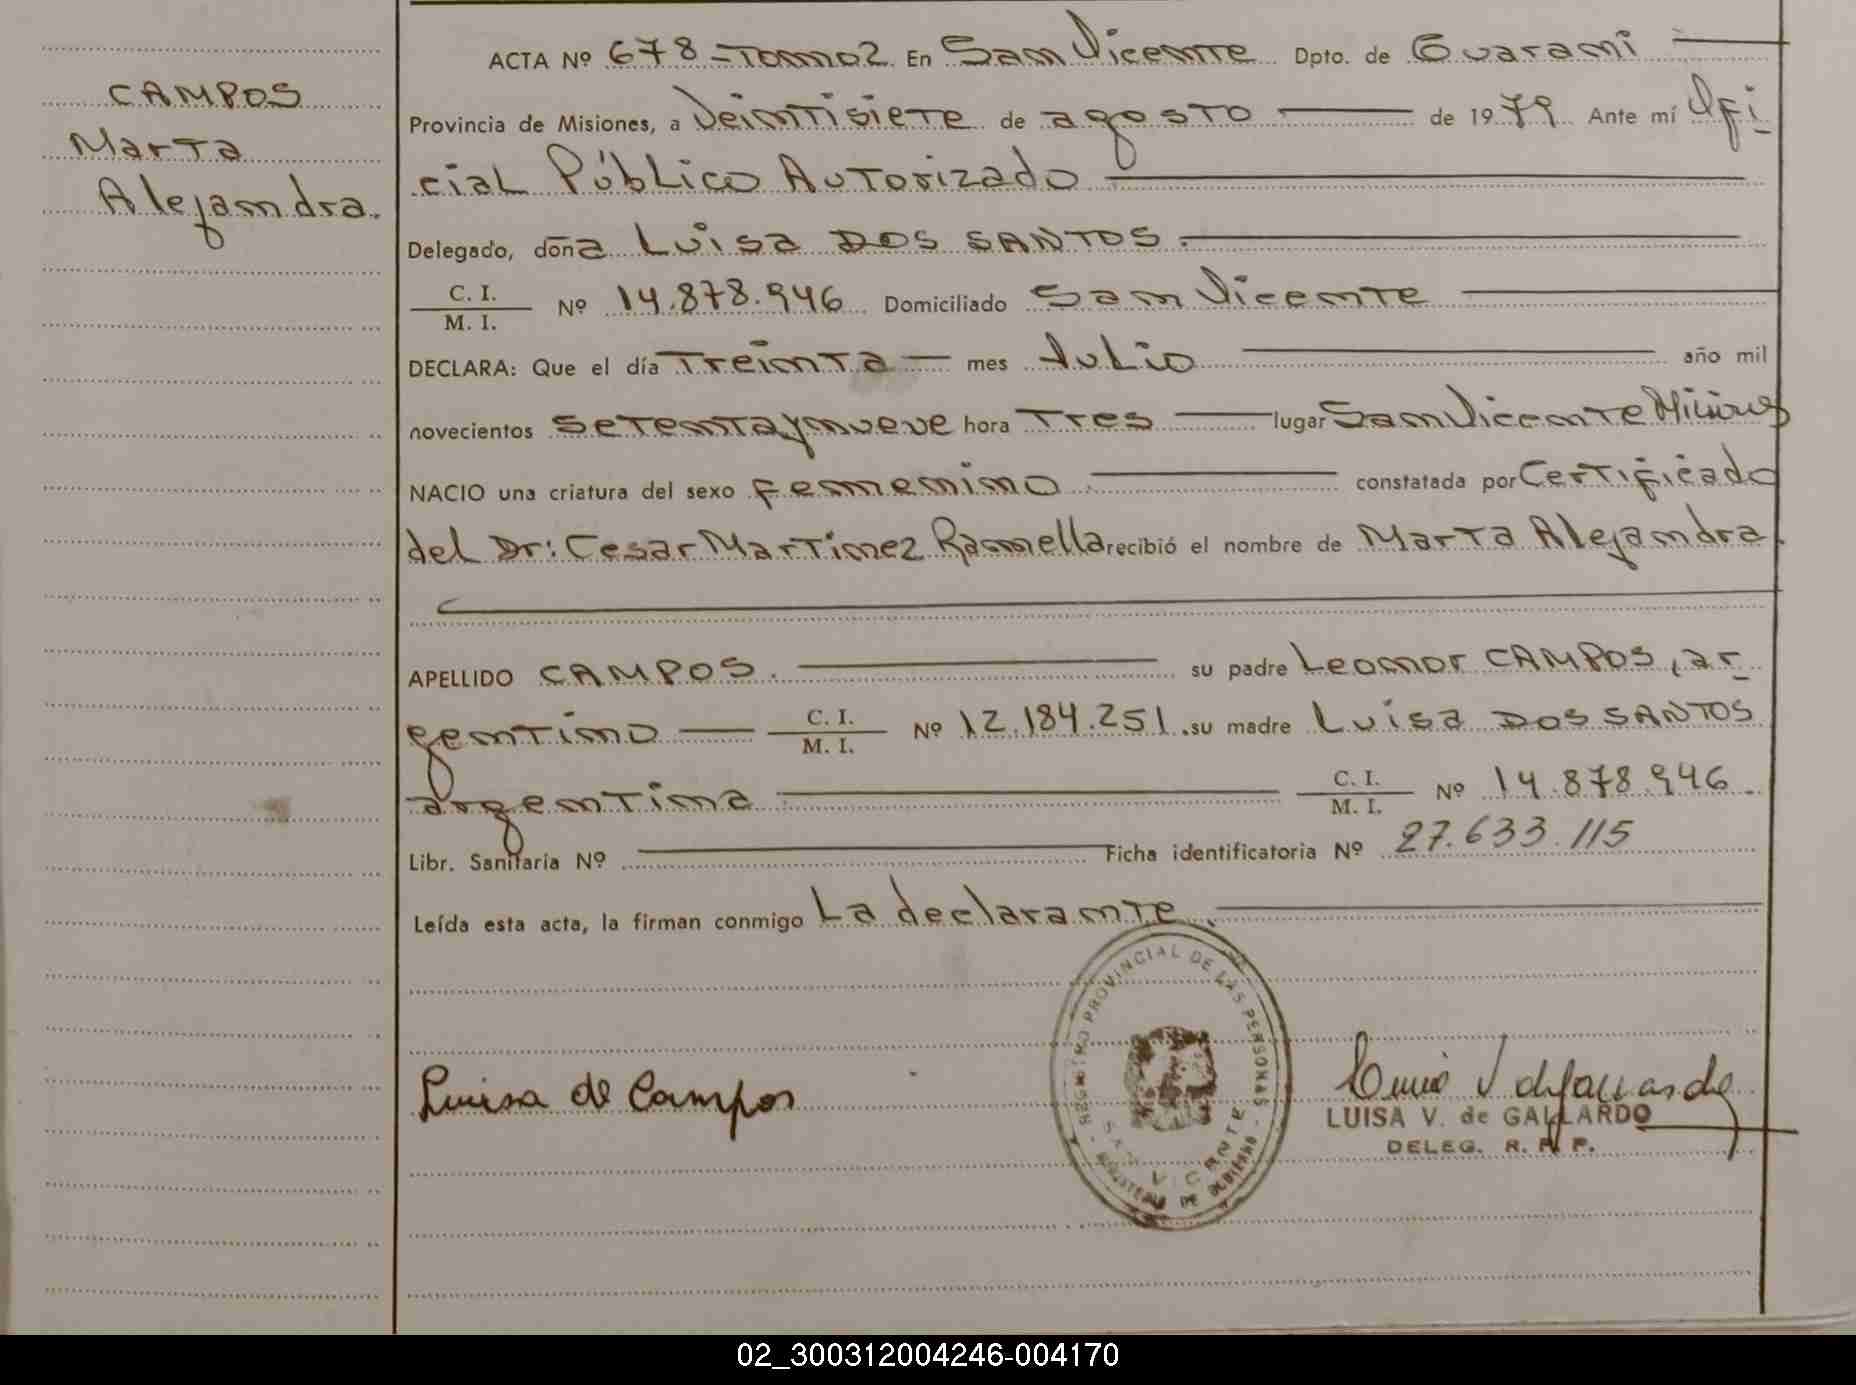 CAMPOS
Marta
Alejandra.
ACTA Nº 678 - Tomo 2. En San Vicente Dpto. de Guaraní
Provincia de Misiones, a Veintisiete de agosto de 1979 Ante mí Ofi-
cial Público Autorizado
Delegado, doña Luisa DOS SANTOS.
C. I.
M. I. Nº 14.878.946 Domiciliado San Vicente
DECLARA: Que el día Treinta mes Julio año mil
novecientos setenta y nueve hora Tres lugar San Vicente Misiones
NACIO una criatura del sexo femenino constatada por Certificado
del Dr: Cesar Martinez Ramella recibió el nombre de Marta Alejandra.
APELLIDO CAMPOS. su padre Leonor CAMPOS, ar-
gentino C. I. M. I. Nº 12.184.251. su madre Luisa DOS SANTOS
argentina C. I. M. I. Nº 14.878.946.
Libr. Sanitaria Nº Ficha identificatoria Nº 27.633.115
Leída esta acta, la firman conmigo La declarante.
REGISTRO PROVINCIAL DE LAS PERSONAS
MINISTERIO DE GOBIERNO
Luisa de Campos
LUISA V. de GALLARDO
DELEG. R. P. P.
02_300312004246-004170